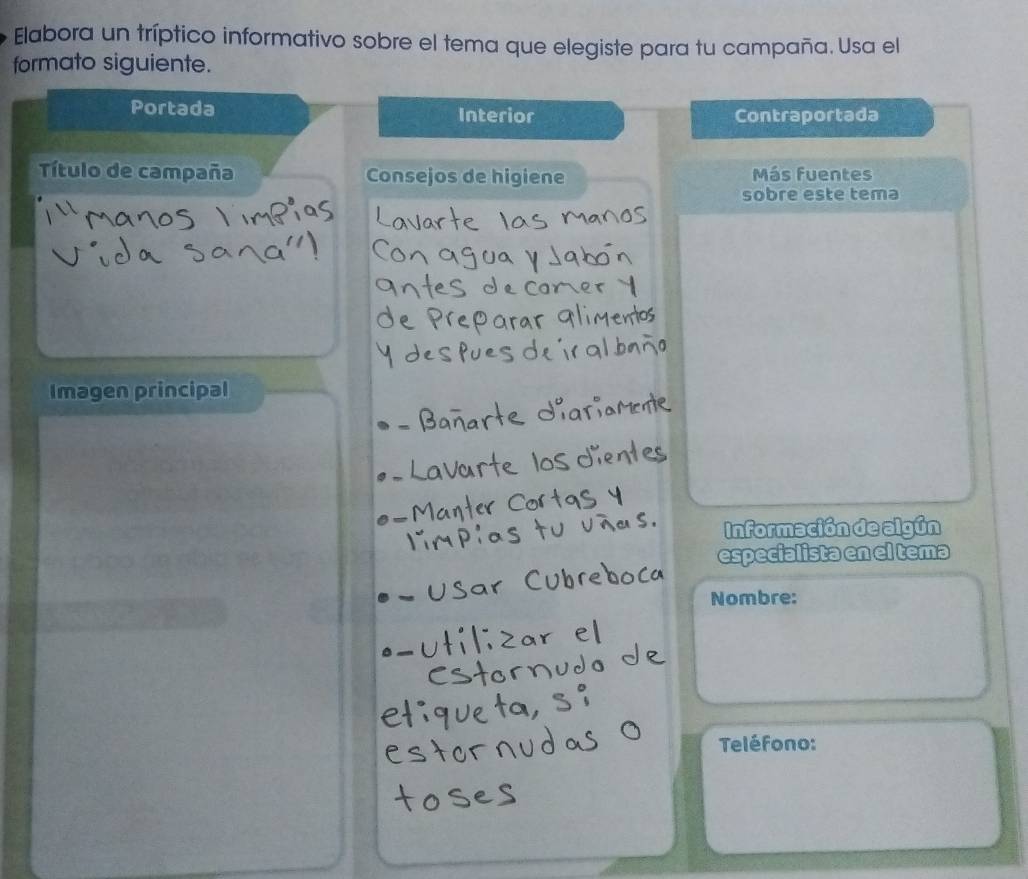 Elabora un tríptico informativo sobre el tema que elegiste para tu campaña. Usa el
formato siguiente.
Portada
Título de campaña
¡"manos limpias
vida sana"!
Imagen principal
Interior
Consejos de higiene
Lavarte las manos
Con agua y Jabón
antes de comer y
de Preparar alimentos
y despues de ir al baño
•- Bañarte diariamente
•- Lavarte los dientes
•- Manter Cortas y
limpias tu uñas.
•- Usar Cubreboca
•- Utilizar el
estornudo de
etiqueta, si
estornudas o
toses
Contraportada
Más fuentes
sobre este tema
Información de algún
especialista en el tema
Nombre:
Teléfono: